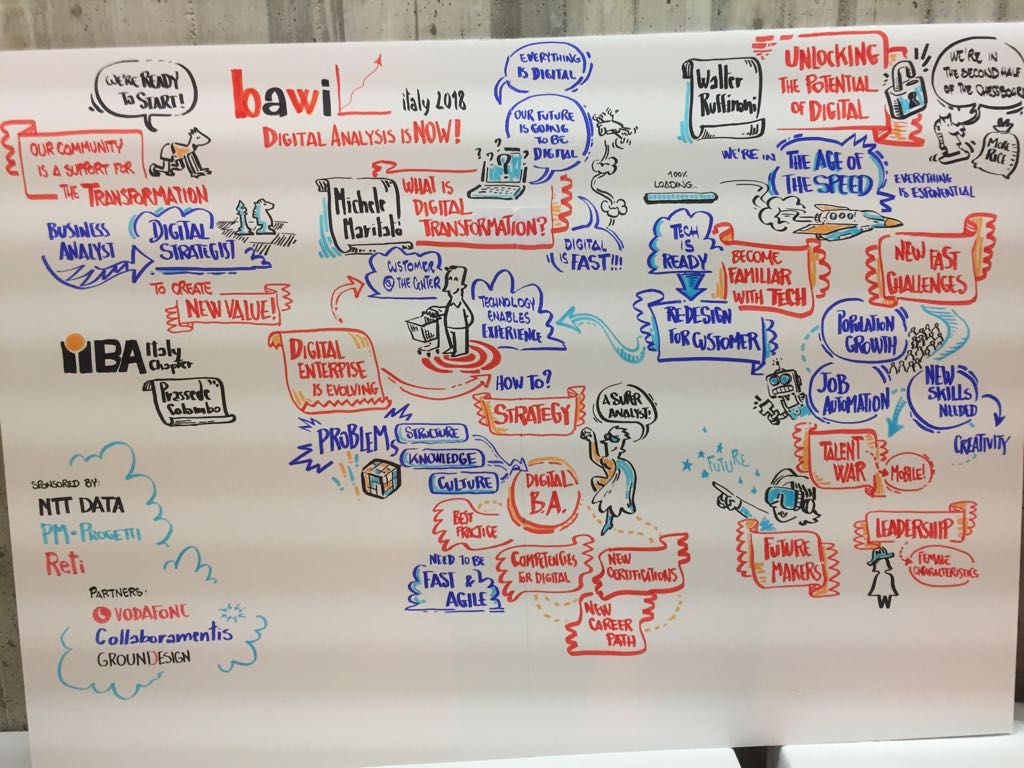 WE'RE READY
TO START!
bawil
italy 2018
DIGITAL ANALYSIS IS NOW!
OUR COMMUNITY
IS A SUPPORT FOR
THE TRANSFORMATION
BUSINESS
ANALYST
DIGITAL
STRATEGIST
TO CREATE
NEW VALUE!
IIBA Italy
Chapter
Prassede
Colombo
SPONSORED BY:
NTT DATA
PM-PROGETTI
Reti
PARTNERS:
VODAFONE
Collaboramentis
GROUNDESIGN
EVERYTHING
IS DIGITAL
OUR FUTURE
IS GOING
TO BE
DIGITAL
? ? ? ?
?
Michele
Maritato
WHAT IS
DIGITAL
TRANSFORMATION?
DIGITAL
IS FAST!!!
CUSTOMER
@ THE CENTER
TECHNOLOGY
ENABLES
EXPERIENCE
DIGITAL
ENTERPISE
IS EVOLVING
HOW TO?
STRATEGY
PROBLEM
STRUCTURE
KNOWLEDGE
CULTURE
A SUPER
ANALYST!
DIGITAL
B.A.
BEST
PRACTICE
NEED TO BE
FAST &
AGILE
COMPETENCIES
FOR DIGITAL
NEW
CERTIFICATIONS
NEW
CAREER
PATH
Walter
Ruffinoni
UNLOCKING
THE POTENTIAL
OF DIGITAL
WE'RE IN
THE SECOND HALF
OF THE CHESSBOARD
MORE
RICE
WE'RE IN
THE AGE OF
THE SPEED
EVERYTHING
IS ESPONENTIAL
100%
LOADING...
TECH
IS
READY
BECOME
FAMILIAR
WITH TECH
NEW FAST
CHALLENGES
RE-DESIGN
FOR CUSTOMER
POPULATION
GROWTH
JOB
AUTOMATION
NEW
SKILLS
NEEDED
CREATIVITY
TALENT
WAR
MOBILE!
FUTURE
FUTURE
MAKERS
LEADERSHIP
FEMALE
CHARACTERISTICS